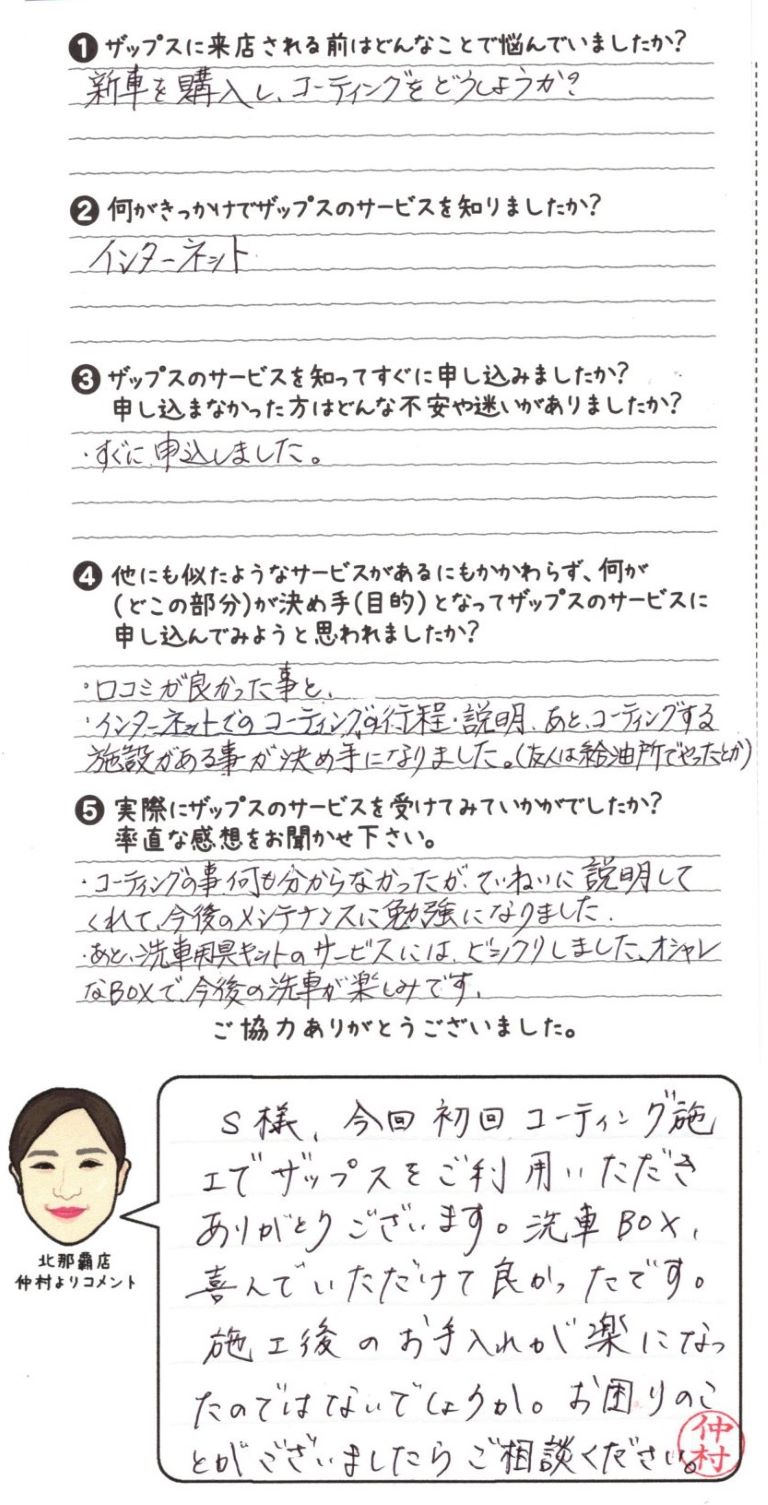 ❶ ザップスに来店される前はどんなことで悩んでいましたか?
新車を購入し、コーティングをどうしようか?
❷ 何がきっかけでザップスのサービスを知りましたか?
インターネット
❸ ザップスのサービスを知ってすぐに申し込みましたか?
申し込まなかった方はどんな不安や迷いがありましたか?
・すぐに、申込しました。
❹ 他にも似たようなサービスがあるにもかかわらず、何が
(どこの部分)が決め手(目的)となってザップスのサービスに
申し込んでみようと思われましたか?
・口コミが良かった事と、
・インターネットでのコーティングの行程・説明、あと、コーティングする
施設がある事が決め手になりました。(友人は給油所でやったとか)
❺ 実際にザップスのサービスを受けてみていかがでしたか?
率直な感想をお聞かせ下さい。
・コーティングの事何も分からなかったが、ていねいに説明して
くれて、今後のメンテナンスに勉強になりました。
・あと、洗車用具キットのサービスには、ビックリしました、オシャレ
なBOXで、今後の洗車が楽しみです。
ご協力ありがとうございました。
S様、今回初回コーティング施
工でザップスをご利用いただき
ありがとうございます。洗車BOX、
喜んでいただけて良かったです。
施工後のお手入れが楽になっ
たのではないでしょうか。お困りのこ
とがございましたらご相談ください。
仲村
北那覇店
仲村よりコメント